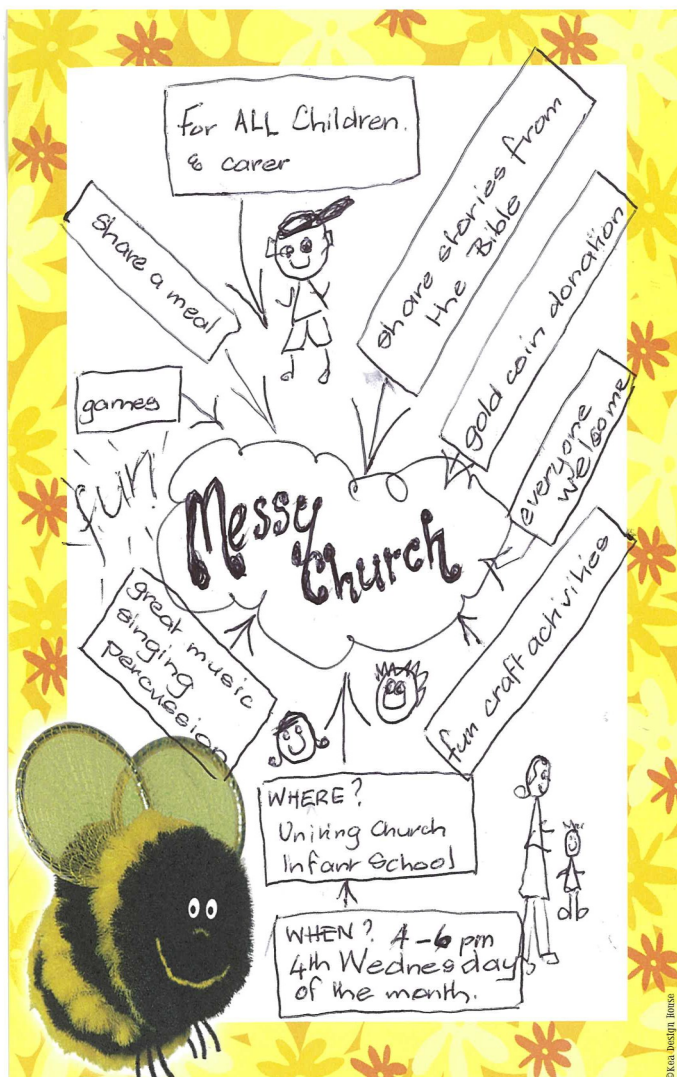 for ALL Children.
& carer
share stories from
the Bible
share a meal
gold coin donation
games
everyone
welcome
fun!
Messy
Church
great music
singing
percussion
fun craft activities
WHERE?
Uniting Church
Infant School
WHEN? 4-6 pm
4th Wednesday
of the month.
©Kea Design House